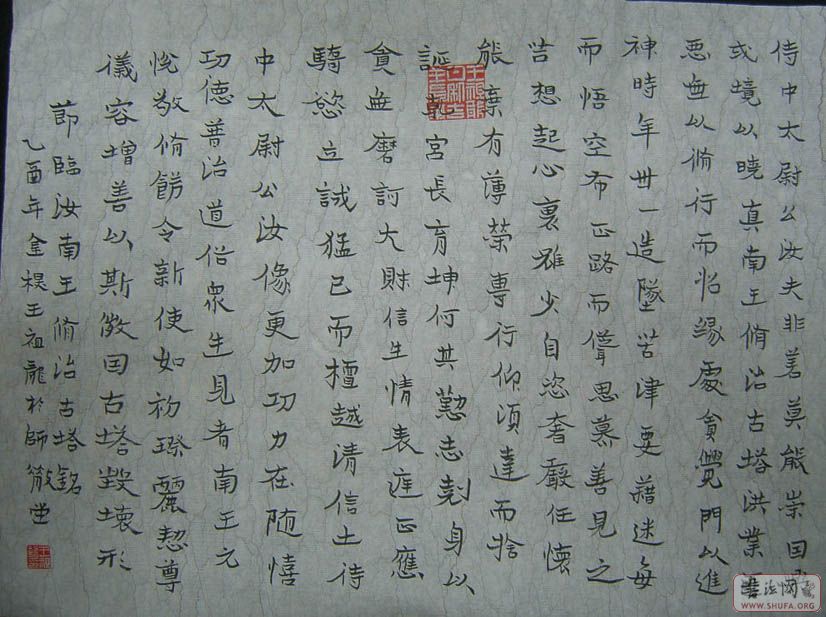 侍中太尉公汝夫非善莫能崇国
或境以曉真南王脩治古塔洪業
悪無以脩行而怡缘處貪覺門以進
神時年卅一造墜苦津要藉迷每
而悟空布正路而聳思慕善見之
苦想起心裏雖少自恣奢嚴任懐
能棄有薄榮專行仰須達而捨
誕宮長育坤何其懃志剋身以
貪無磨訶大財信生情表遮正應
騎慾立誠猛已而擅越清信士侍
中太尉公汝像更加功力在随憘
功徳普治道俗衆生見者南王元
悅敬脩餝令新使如初璨麗慗尊
儀容增善以斯徴国古塔毀壊形
節臨汝南王脩治古塔銘
乙酉年金祖龍於師簃堂
書法网
WWW.SHUFA.ORG